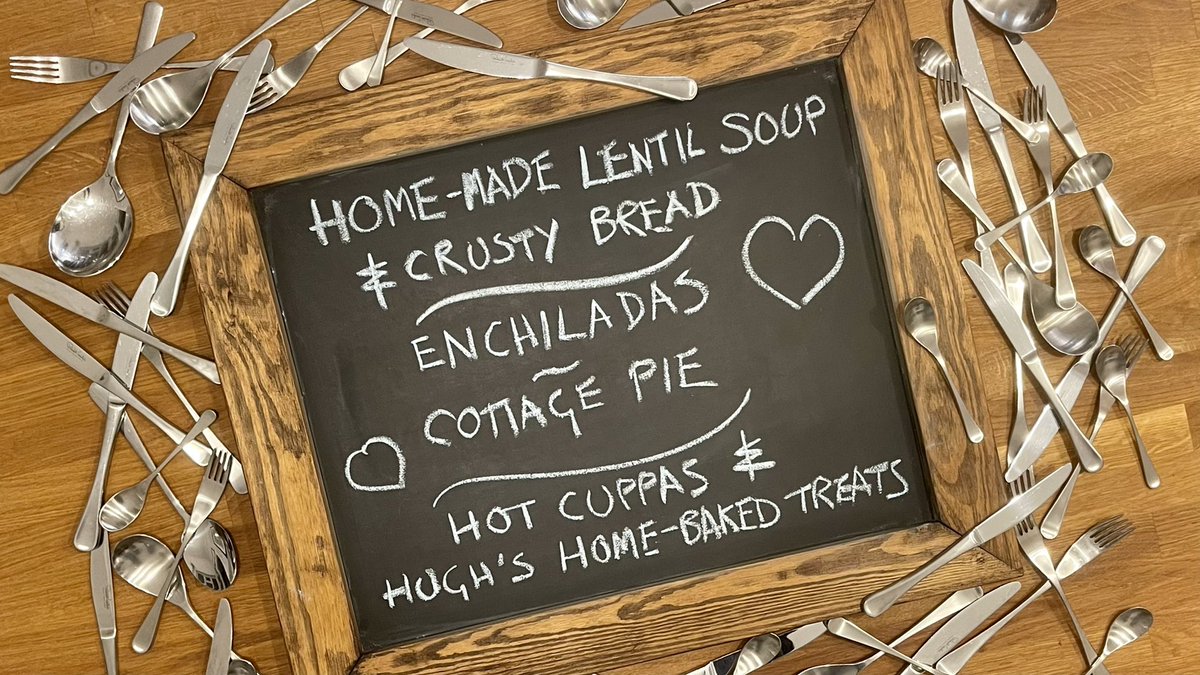 HOME-MADE LENTIL SOUP
& CRUSTY BREAD
ENCHILADAS
~
COTTAGE PIE
HOT CUPPAS &
HUGH'S HOME-BAKED TREATS